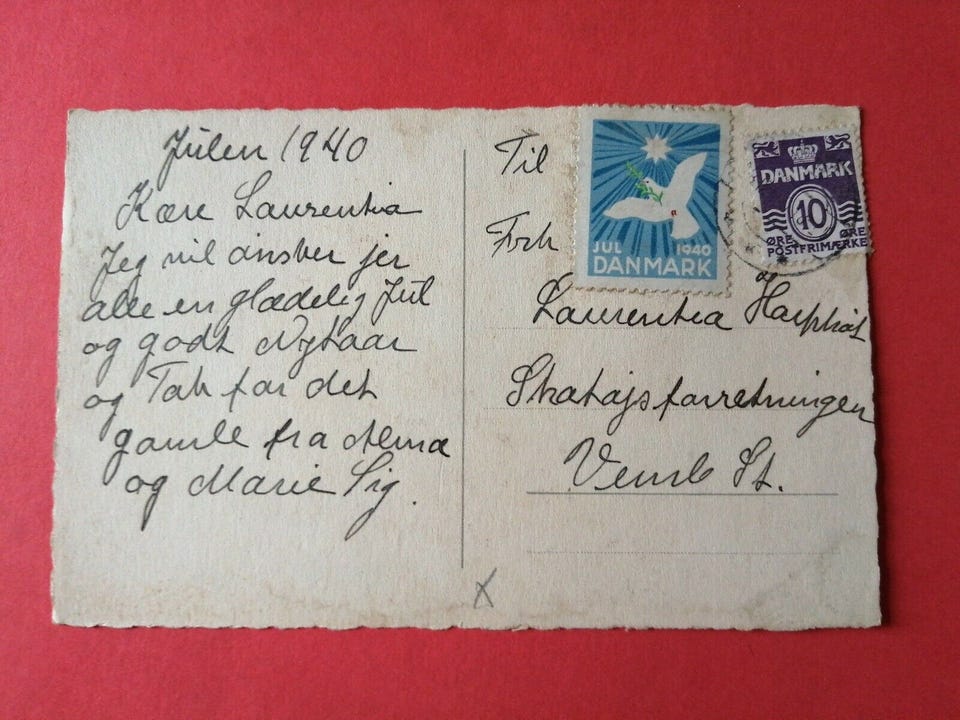 Julen 1940
Kære Laurentia
Jeg vil ønsker jer
alle en glædelig Jul
og godt Nytaar
og Tak for det
gamle fra Alma
og Marie Sig.
Til
Frk
Laurentia
Skotøjsforretningen
Vemb St.
JUL 1940
DANMARK
DANMARK
10
ØRE ØRE
POSTFRIMÆRKE
x